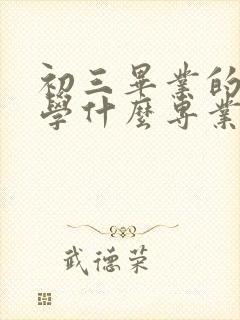 初三畢業的
學什麼專業
武德荣